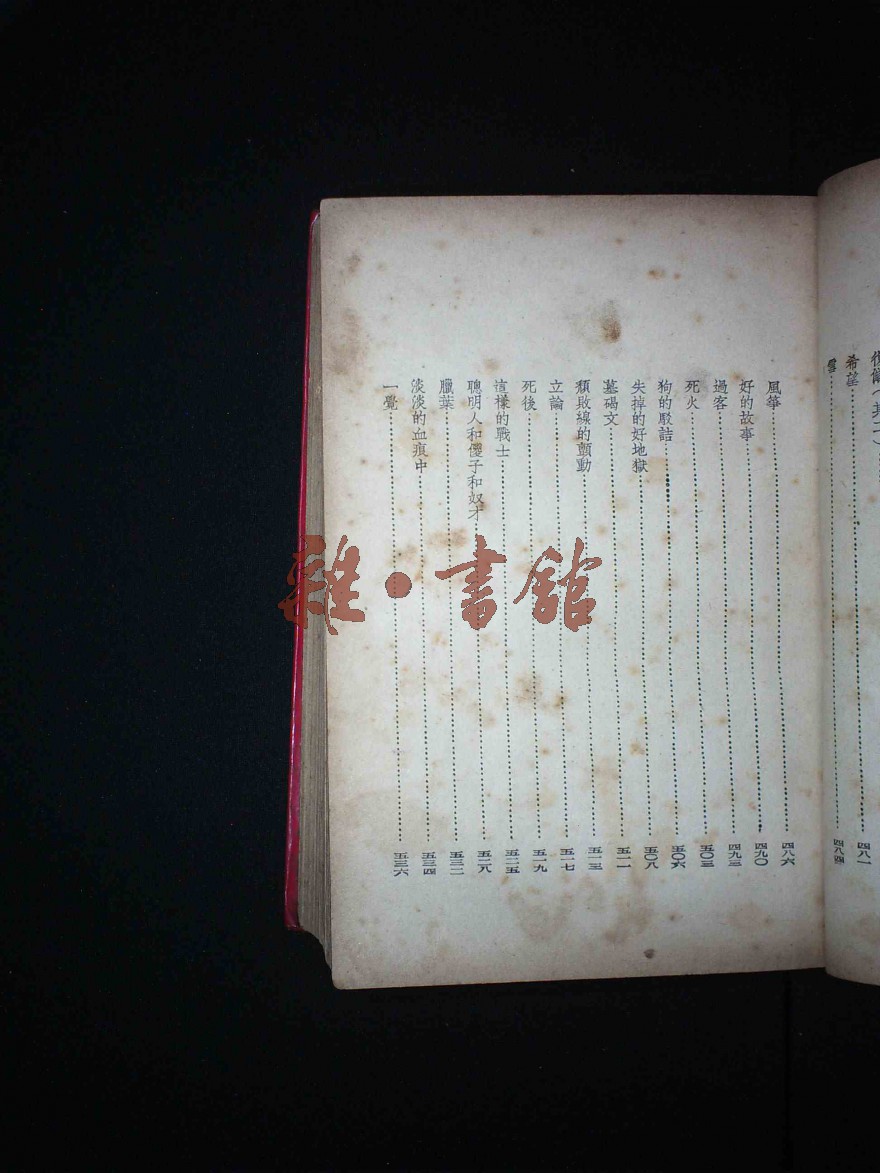 復讎（其二）……四八一
希望……四八一
雪……四八四
風箏……四八六
好的故事……四九〇
過客……四九三
死火……五〇三
狗的駁詰……五〇六
失掉的好地獄……五〇八
墓碣文……五一一
頹敗線的顫動……五一三
立論……五一七
死後……五一九
這樣的戰士……五二五
聰明人和傻子和奴才……五二八
臘葉……五三二
淡淡的血痕中……五三四
一覺……五三六
雜·書館